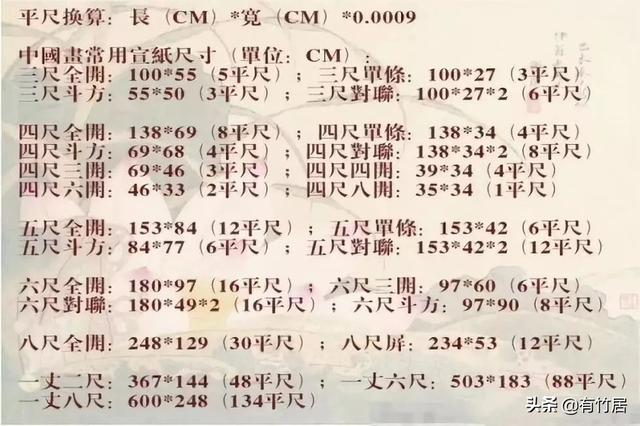 平尺换算：長（CM）*寬（CM）*0.0009
中國畫常用宣紙尺寸（單位：CM）：
三尺全開：100*55（5平尺）；三尺單條：100*27（3平尺）
三尺斗方：55*50（3平尺）；三尺對聯：100*27*2（6平尺）
四尺全開：138*69（8平尺）；四尺單條：138*34（4平尺）
四尺斗方：69*68（4平尺）；四尺對聯：138*34*2（8平尺）
四尺三開：69*46（3平尺）；四尺四開：39*34（4平尺）
四尺六開：46*33（2平尺）；四尺八開：35*34（1平尺）
五尺全開：153*84（12平尺）；五尺單條：153*42（6平尺）
五尺斗方：84*77（6平尺）；五尺對聯：153*42*2（12平尺）
六尺全開：180*97（16平尺）；六尺三開：97*60（6平尺）
六尺對聯：180*49*2（16平尺）；六尺斗方：97*90（8平尺）
八尺全開：248*129（30平尺）；八尺屏：234*53（12平尺）
一丈二尺：367*144（48平尺）；一丈六尺：503*183（88平尺）
一丈八尺：600*248（134平尺）
头条 @有竹居